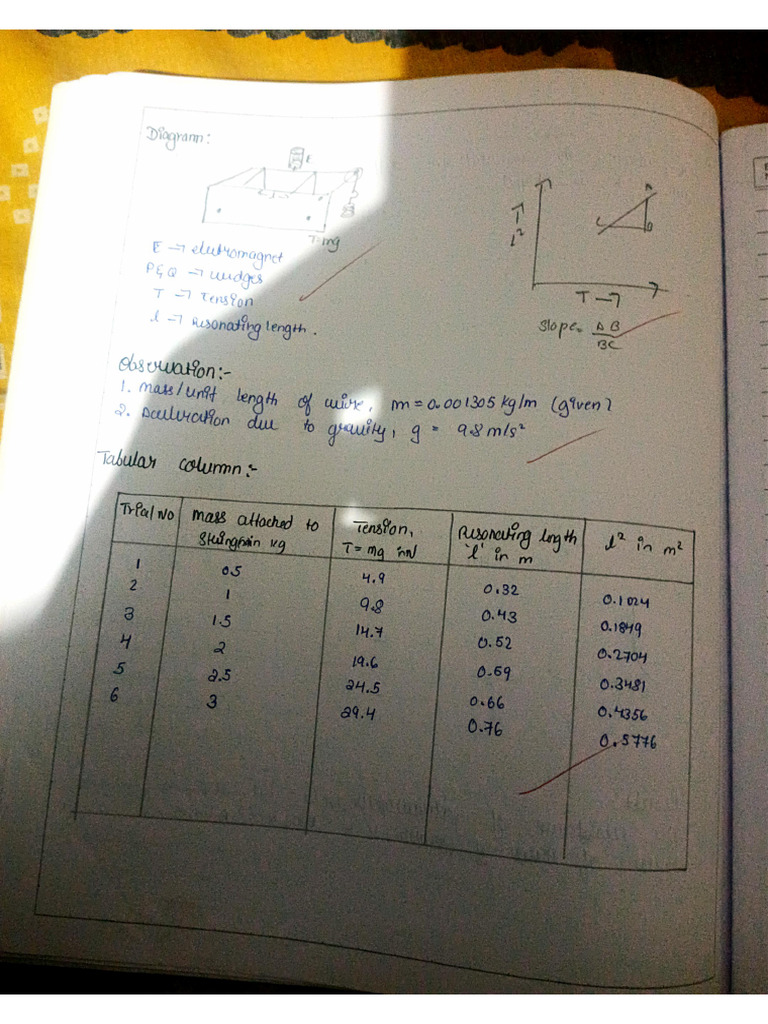 Diagram:
E
l
T=mg
E → eletromagnet
P&Q → wedges
T → Tension
l → Resonating length.
↑
l²
A
C
B
T →
Slope = AB
BC
Observation:-
1. mass/unit length of wire, m = 0.001305 kg/m (given)
2. Acceleration due to gravity, g = 9.8 m/s²
Tabular column:-
Trial No | mass attached to kg | Tension, T = mg in N | Resonating length 'l' in m | l² in m²
1 | 0.5 | 4.9 | 0.32 | 0.1024
2 | 1 | 9.8 | 0.43 | 0.1849
3 | 1.5 | 14.7 | 0.52 | 0.2704
4 | 2 | 19.6 | 0.59 | 0.3481
5 | 2.5 | 24.5 | 0.66 | 0.4356
6 | 3 | 29.4 | 0.76 | 0.5776